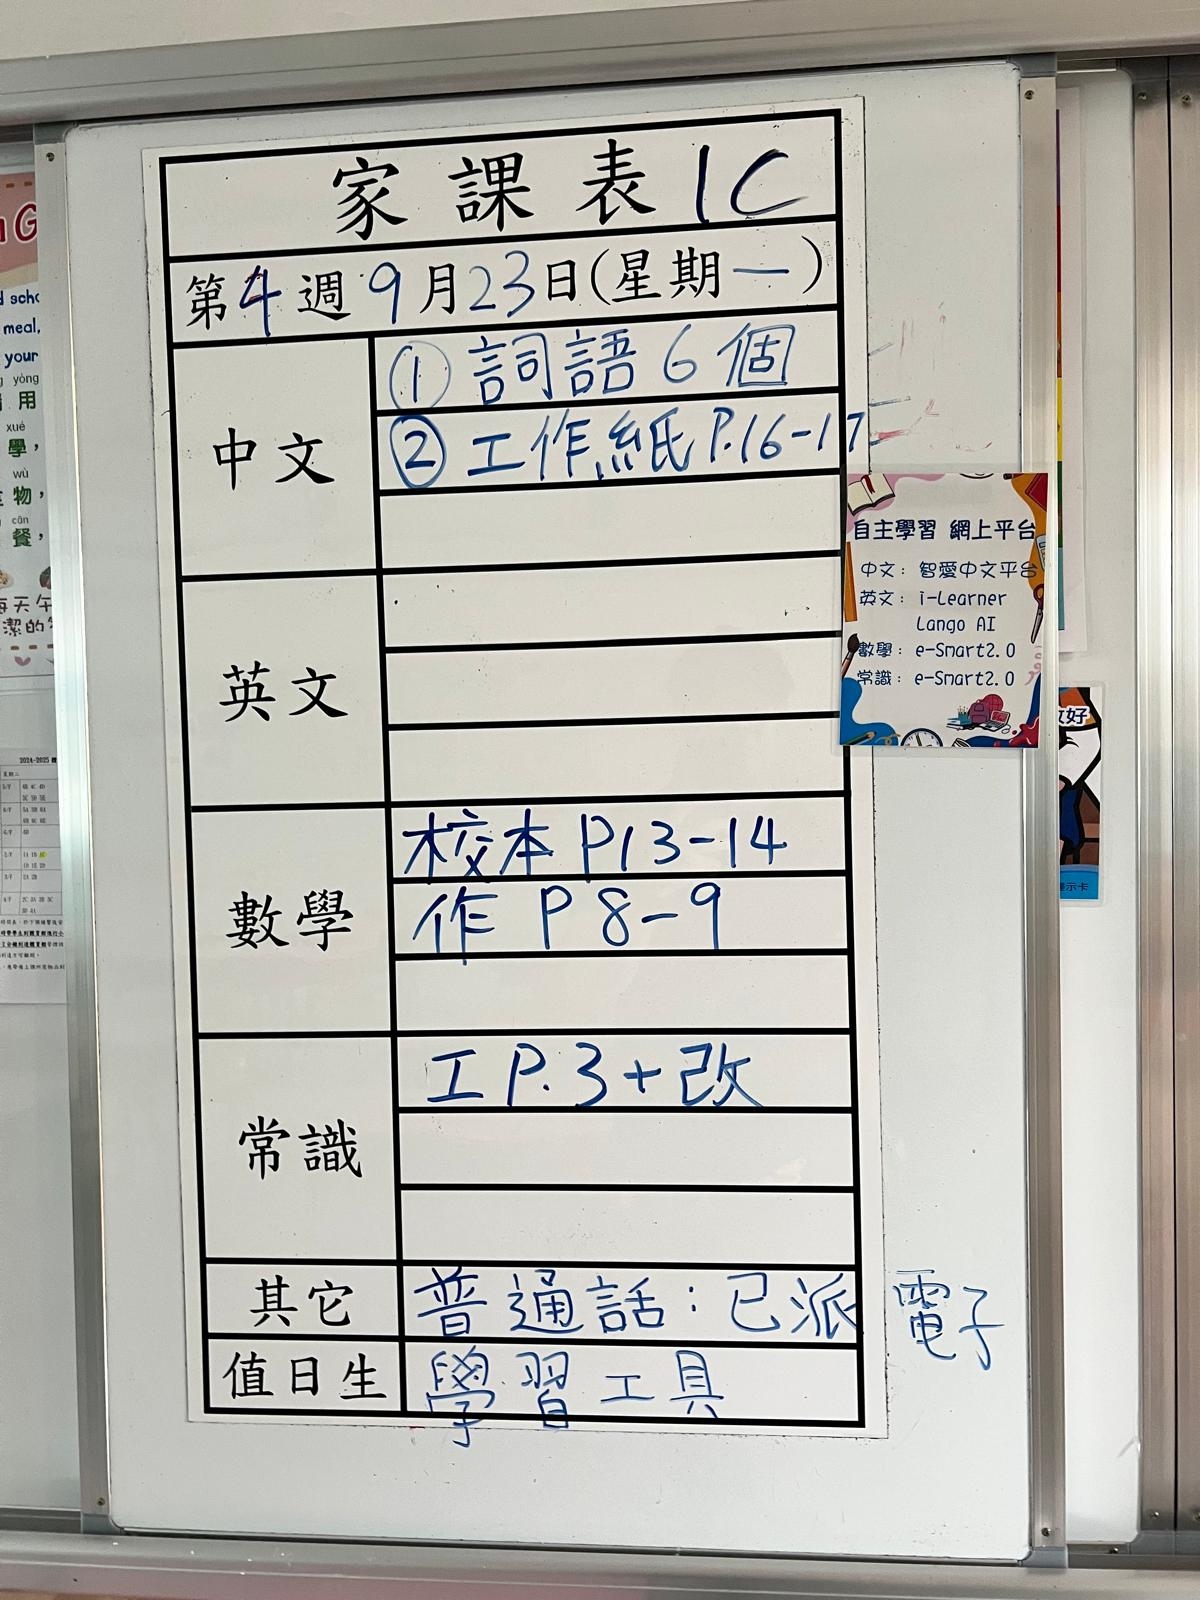 家課表 1C
第4週9月23日(星期一)
中文
① 詞語6個
② 工作紙P.16-17
英文
數學
校本 P13-14
作 P8-9
常識
工P.3+改
其它
普通話：已派電子
值日生
學習工具
自主學習 網上平台
中文：智愛中文平台
英文：i-Learner
Lango AI
數學：e-Smart2.0
常識：e-Smart2.0
meal,
your
yòng
用
xué
學，
wù
物，
cān
餐，
每天午
潔的
2024-2025
好
示卡